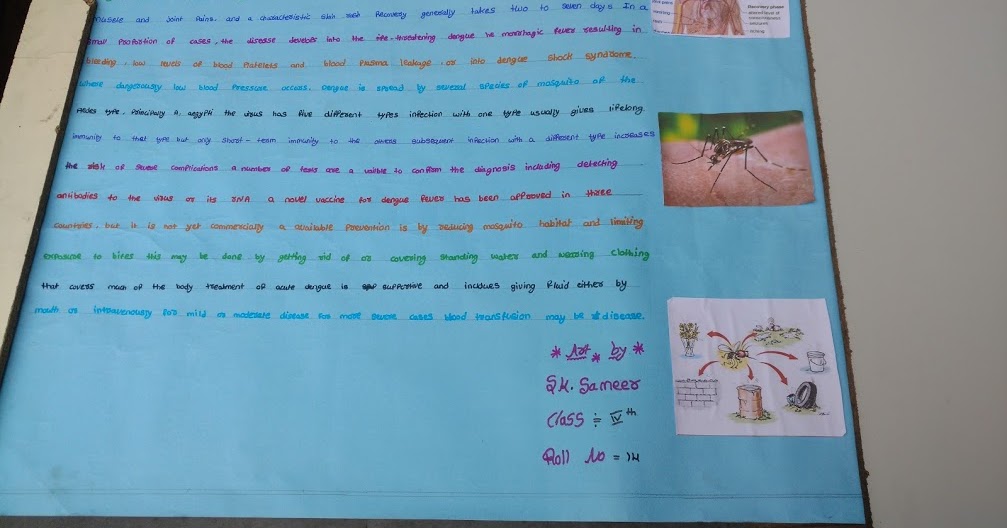 muscle and joint Pains. and a characteristic skin rash Recovery generally takes two to seven days In a
small Proportion of cases, the disease develops into the life-threatening dengue he morrhagic fever resulting in
bleeding, low levels of blood Platelets and blood Plasma leakage. or into dengue shock syndrome.
where dangerously low blood Pressure occurs. Dengue is spread by several species of mosquito of the
Aedes type. Principally A. aegypti the virus has five different types infection with one type usually gives lifelong
immunity to that type but only short-term immunity to the others subsequent infection with a different type increases
the risk of severe complications a number of tests are a vaible to confirm the diagnosis including detecting
antibodies to the virus or its RNA a novel vaccine for dengue fever has been approved in three
countries. but it is not yet commercially a available Prevention is by reducing mosquito habitat and limiting
exposure to bites this may be done by getting rid of or covering standing water and wearing clothing
that covers much of the body treatment of acute dengue is supportive and incidues giving fluid either by
mouth or intravenously for mild or moderate disease for more severe cases blood transfusion may be disease.
Recovery phase
itching
* Art * by *
SK. Sameer
Class = IVth
Roll No = 14